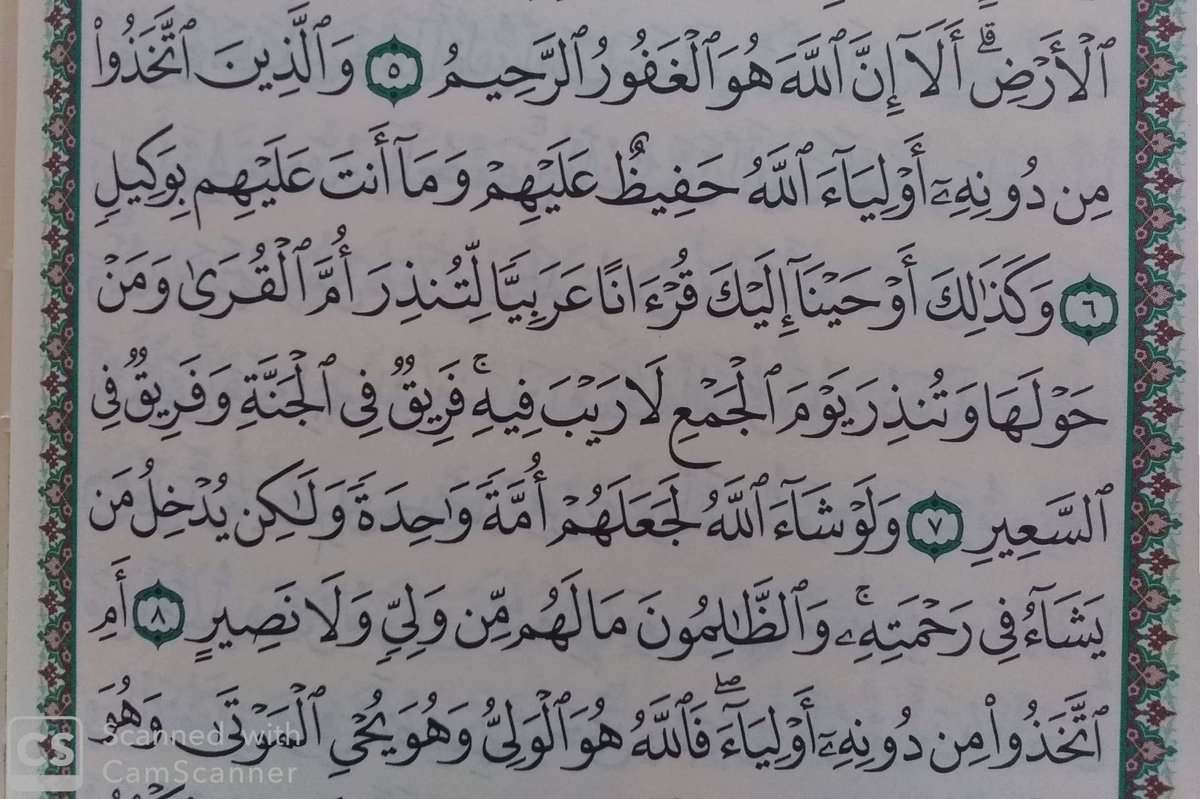 ٱلْأَرْضِ ۗ أَلَآ إِنَّ ٱللَّهَ هُوَ ٱلْغَفُورُ ٱلرَّحِيمُ ۝٥ وَٱلَّذِينَ ٱتَّخَذُوا۟
مِن دُونِهِۦٓ أَوْلِيَآءَ ٱللَّهُ حَفِيظٌ عَلَيْهِمْ وَمَآ أَنتَ عَلَيْهِم بِوَكِيلٍ
۝٦ وَكَذَٰلِكَ أَوْحَيْنَآ إِلَيْكَ قُرْءَانًا عَرَبِيًّا لِّتُنذِرَ أُمَّ ٱلْقُرَىٰ وَمَنْ
حَوْلَهَا وَتُنذِرَ يَوْمَ ٱلْجَمْعِ لَا رَيْبَ فِيهِ ۚ فَرِيقٌ فِى ٱلْجَنَّةِ وَفَرِيقٌ فِى
ٱلسَّعِيرِ ۝٧ وَلَوْ شَآءَ ٱللَّهُ لَجَعَلَهُمْ أُمَّةً وَٰحِدَةً وَلَٰكِن يُدْخِلُ مَن
يَشَآءُ فِى رَحْمَتِهِۦ ۚ وَٱلظَّٰلِمُونَ مَا لَهُم مِّن وَلِىٍّ وَلَا نَصِيرٍ ۝٨ أَمِ
ٱتَّخَذُوا۟ مِن دُونِهِۦٓ أَوْلِيَآءَ ۖ فَٱللَّهُ هُوَ ٱلْوَلِىُّ وَهُوَ يُحْىِ ٱلْمَوْتَىٰ وَهُوَ
CS Scanned with
CamScanner